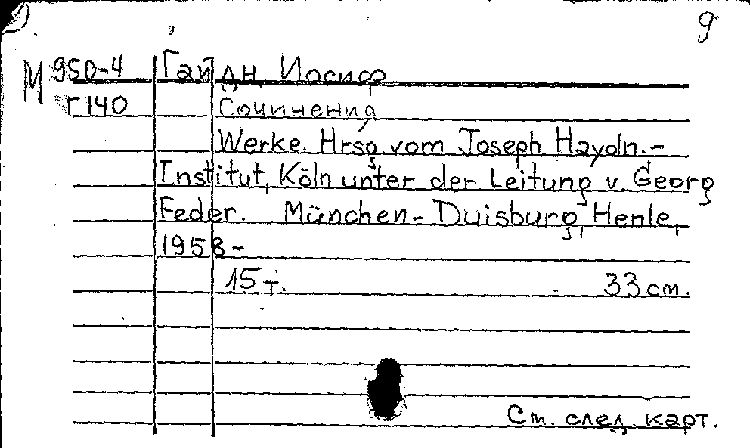 9
М 950-4 Гайдн, Иосиф
Г140 Сочинения
Werke. Hrsg vom Joseph Haydn.-
Institut, Köln unter der Leitung v. Georg
Feder. München-Duisburg, Henle,
1958-
15 т. 33 см.
См. след. карт.